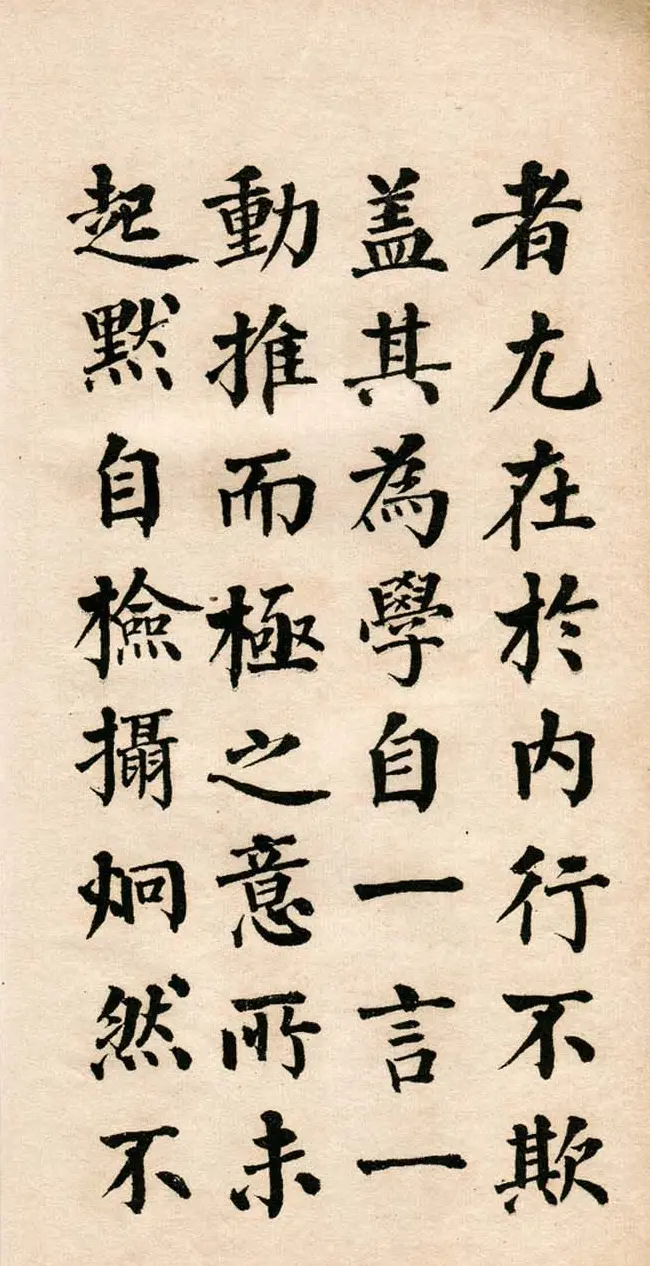 者尤在於内行不欺
盖其為學自一言一
動推而極之意所未
起默自檢攝炯然不